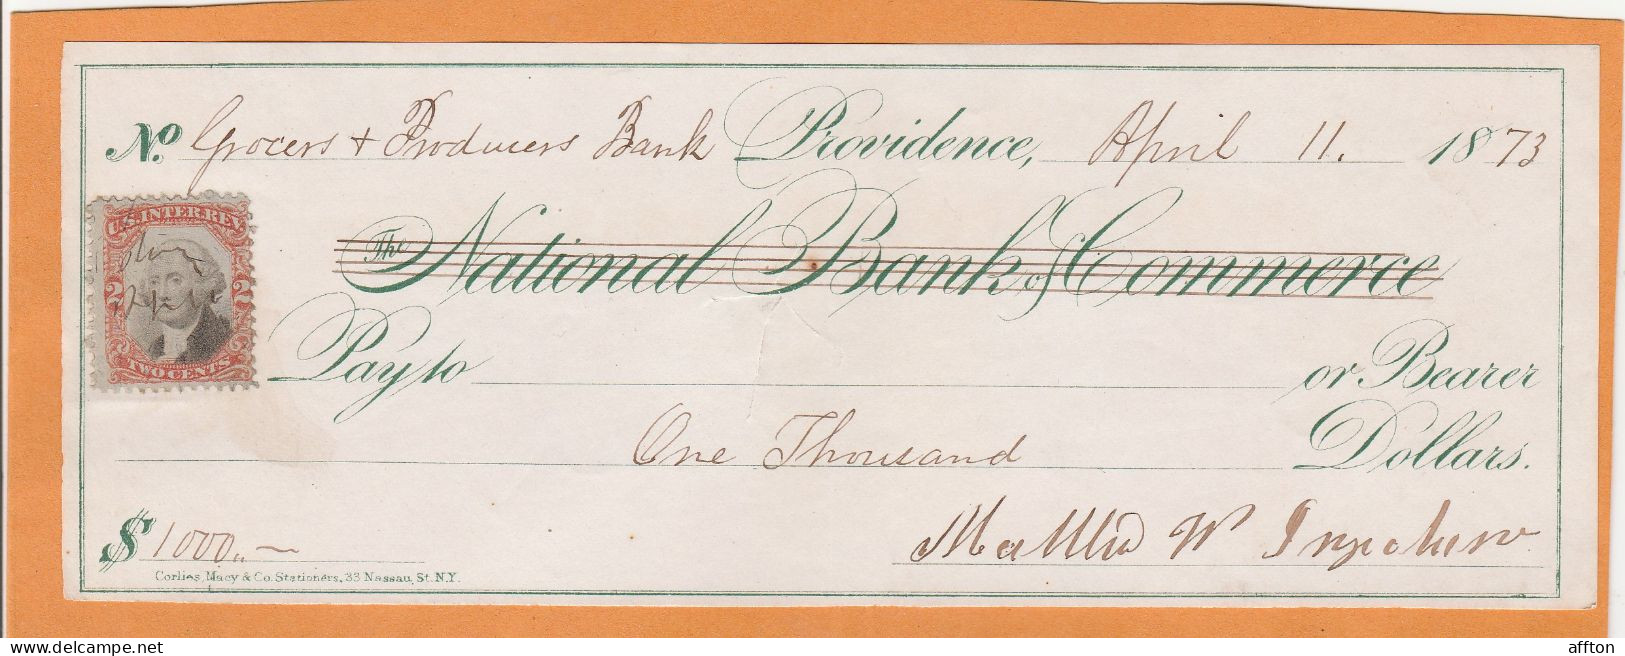 No. Grocers + Producers Bank Providence, April 11. 1873
The National Bank of Commerce
U.S. INTER. REV.
2 2
TWO CENTS
Pay to or Bearer
One Thousand Dollars.
$1000,,~
Matthew W
Corlies, Macy & Co. Stationers, 33 Nassau, St. N.Y.
www.delcampe.net
affton